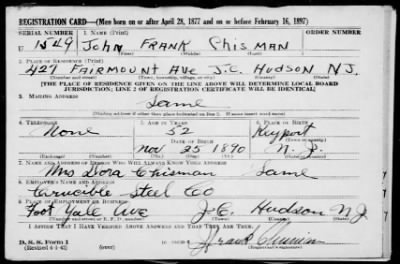 REGISTRATION CARD—(Men born on or after April 28, 1877 and on or before February 16, 1897)
SERIAL NUMBER 1. NAME (Print) ORDER NUMBER
U 1549 John FRANK Chisman
(First) (Middle) (Last)
2. PLACE OF RESIDENCE (Print)
427 FAIRMOUNT Ave J.C. HUDSON N.J.
(Number and street) (Town, township, village, or city) (County) (State)
[THE PLACE OF RESIDENCE GIVEN ON THE LINE ABOVE WILL DETERMINE LOCAL BOARD
JURISDICTION; LINE 2 OF REGISTRATION CERTIFICATE WILL BE IDENTICAL]
3. MAILING ADDRESS
Same
[Mailing address if other than place indicated on line 2. If same insert word same]
4. TELEPHONE 5. AGE IN YEARS 6. PLACE OF BIRTH
None 52 Keyport
DATE OF BIRTH
Nov 25 1890 N.J.
7. NAME AND ADDRESS OF PERSON WHO WILL ALWAYS KNOW YOUR ADDRESS
Mrs Dora Chisman Same
8. EMPLOYER'S NAME AND ADDRESS
Crucible Steel Co
9. PLACE OF EMPLOYMENT OR BUSINESS
Foot Yale Ave J.C. Hudson NJ
(Number and street or R. F. D. number) (Town) (County) (State)
I AFFIRM THAT I HAVE VERIFIED ABOVE ANSWERS AND THAT THEY ARE TRUE.
D. S. S. Form 1
(Revised 4-1-42)